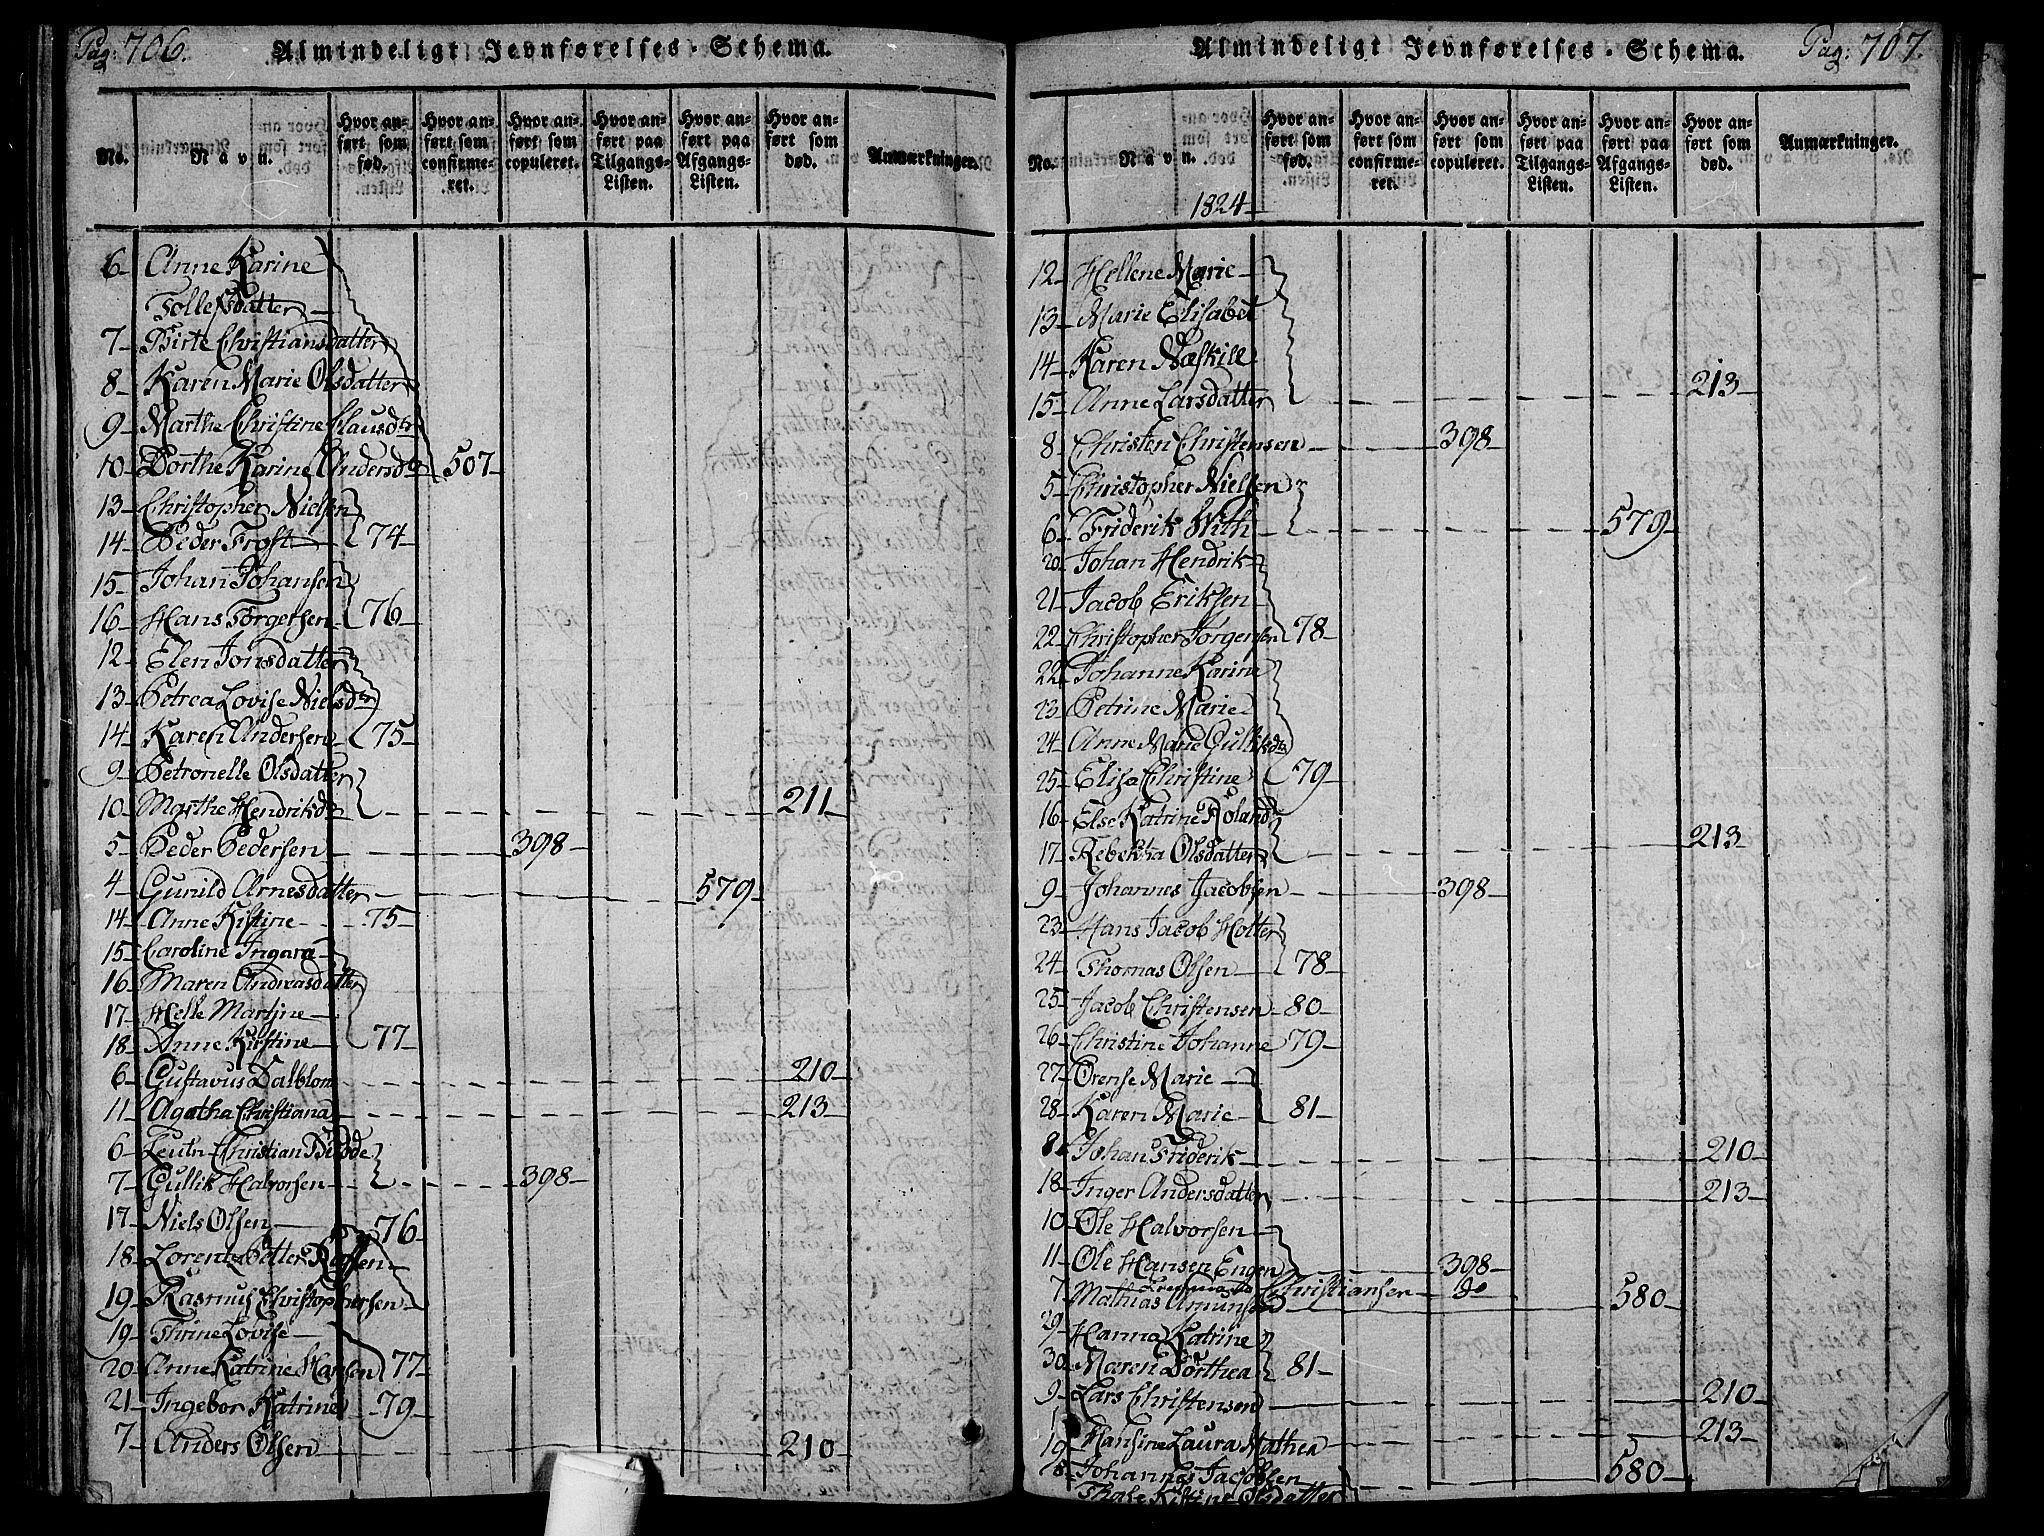 Pag: 706.
Almindeligt Jevnførelses-Schema.
No.
Navn.
Hvor anført som fød.
Hvor anført som confirmeret.
Hvor anført som copuleret.
Hvor anført paa Tilgangs-Listen.
Hvor anført paa Afgangs-Listen.
Hvor anført som død.
Anmærkninger.
6 Anne Karine
Tollefsdatter
7 Birte Christiansdatter
8 Karen Marie Olsdatter
9 Marthe Christine Clausdtr
10 Dorthe Karine Andersdtr 507
13 Christopher Nielsen
14 Peder Frost 74
15 Johan Johansen
16 Hans Torgersen 76
12 Elen Jonsdatter
13 Petrea Lovise Nielsdtr
14 Karen Andersen 75
9 Petronelle Olsdatter
10 Marthe Hendriksdtr 211
5 Peder Pedersen 398
4 Gunild Arnesdatter 579
14 Anne Kistine 75
15 Caroline Ingara
16 Maren Andreasdatter
17 Helle Martine
18 Anne Kirstine 77
6 Gustavus Dalblom 210
11 Agatha Christiana 213
6 Leutn Christian Budde
7 Gullik Halvorsen 398
17 Niels Olsen 76
18 Lorentz Petter
19 Rasmus Christophersen
19 Thrine Lovise
20 Anne Katrine Hansen 77
21 Ingebor Katrine 79
7 Anders Olsen 210
Almindeligt Jevnførelses-Schema.
Pag: 707.
No.
Navn.
1824
Hvor anført som fød.
Hvor anført som confirmeret.
Hvor anført som copuleret.
Hvor anført paa Tilgangs-Listen.
Hvor anført paa Afgangs-Listen.
Hvor anført som død.
Anmærkninger.
12 Hellene Marie
13 Marie Elisabet
14 Karen Næskill
15 Anne Larsdatter 213
8 Christen Christensen 398
5 Christopher Nielsen
6 Friderik With 579
20 Johan Hendrik
21 Jacob Eriksen
22 Christopher Jørgensen 78
22 Johanne Karine
23 Petrine Marie
24 Anne Marie Gulliksdtr
25 Eliza Christine 79
16 Else Katrine Roland
17 Rebekka Olsdatter 213
9 Johannes Jacobsen 398
23 Hans Jacob Holter
24 Thomas Olsen 78
25 Jacob Christensen 80
26 Christine Johanne 79
27 Orense Marie
28 Karen Marie 81
8 Johan Friderik 210
18 Inger Andersdatter 213
10 Ole Halvorsen
11 Ole Hansen Engen 398
Christiansen do
7 Mathias Amundsen 580
29 Hanna Katrine
30 Maren Dorthea 81
9 Lars Christensen 210
19 Hansine Laura Mathea 213
8 Johannes Jacobsen 580